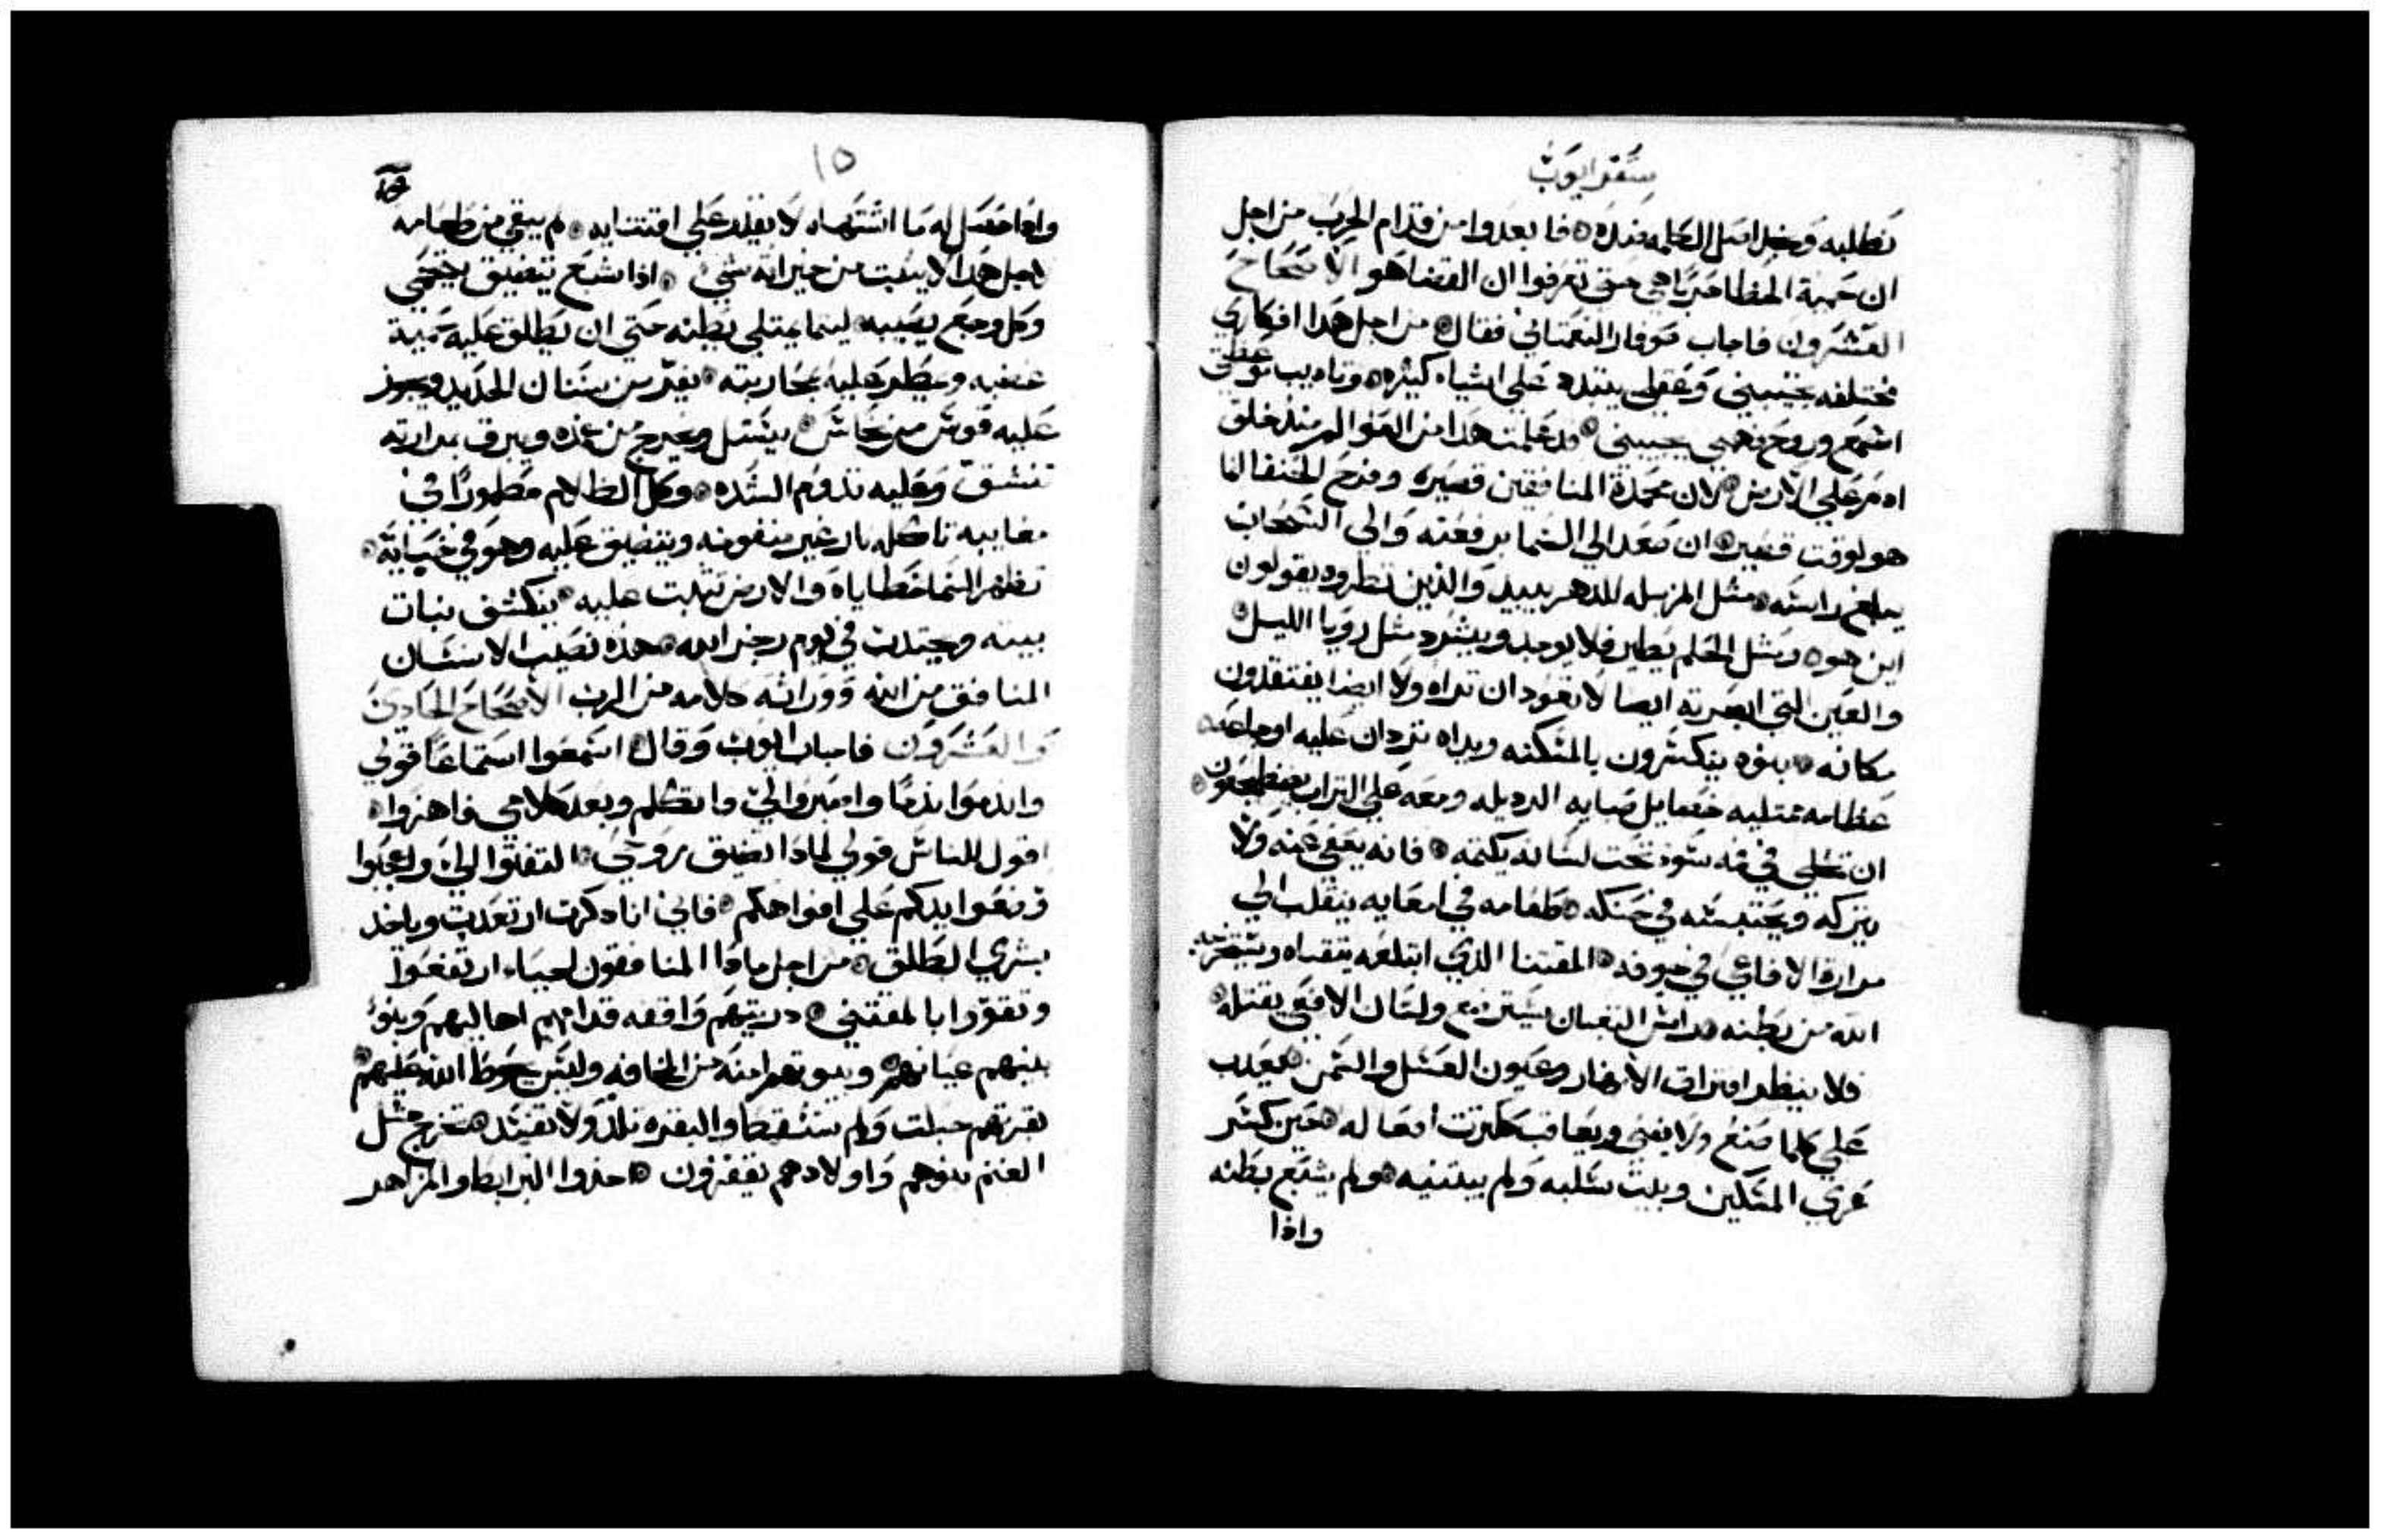 سفر ايوب
نطلبه ونجد اصل الكلمه ضده فابعدوا من قدام الحرب من اجل
ان حمية الخطا حربا هي حتى تعرفوا ان القضا هو الاصحاح
العشرون فاجاب صوفار النعماتي فقال من اجل هذا افكاري
مختلفه تجيبني وعقلي يتبدد على اشيا كثيره وتاديب توعظني
اسمع وروح فهمي يجيبني قد علمت هذا من العوالم منذ خلق
ادم على الارض لان محمدة المنافقين قصيره وفرح الحنفا انما
هو لوقت قصير ان صعد الي السما برفعته والي السحاب
يبلغ راسه مثل المزبله للدهر يبيد والذين نظروه يقولون
اين هو ومثل الحلم يطير فلا يوجد ويشرد مثل رويا الليل
والعين التي ابصرته ايضا لا تعود ان تراه ولا ايضا يفتقدون
مكانه بنوه ينكسرون بالمسكنه ويداه تردان عليه اوجاعه
عظامه ممتليه خصايل صبايه الرديله ومعه على التراب يضطجعون
ان تحلي في فمه سو تحت لسانه يكتمه فانه يعفي عنه ولا
يتركه ويحتبسه في حنكه طعامه في امعايه ينقلب الي
مرارة الافاعي في جوفه المقتنا الذي ابتلعه يتقياه ويستخرجه
الله من بطنه راس الثعبان يسترضع ولسان الافعي يقتله
فلا ينظر افتراق الانهار وعيون العسل والسمن يعدب
على كلما صنع ولا يفني ويعاقب بكثرت افعاله حين كسر
عري المسكين وبيت سلبه ولم يبتنيه ولم يشبع بطنه
واذا
١٥
واذا حصل له ما اشتهاه لا يقدر على اقتنايه لم يبقي من طعامه
لاجل هذا لا يثبت من خيراته شي اذا شبع يتضيق يحتمي
وكل وجع يصيبه ليتما يمتلي بطنه حتي ان يطلق عليه حمية
غضبه ويمطر عليه محاربته يفر من سنان الحديد ويجوز
عليه قوس من نحاس يستل ويخرج من غمده ويبرق بمرارته
تنشق وعليه تدوم الشده وكل الظلام مطمورا في
مخاييه تاكله نار غير منفوخه ويتضيق عليه وهو في خبايه
تظهر السما خطاياه والارض تثبت عليه ينكشف نبات
بيته ويجتدب في يوم رجز الله هذه نصيب الانسان
المنافق من الله ووراثه كلامه من الرب الاصحاح الحادي
والعشرون فاجاب ايوب وقال اسمعوا استماعا قولي
واندموا ندما واصبروا لي وانا اتكلم وبعد كلامي فاهزوا
اقول للناس قولي لماذا تضيق روحي التفتوا الي واعجبوا
وضعوا ايديكم على افواهكم فاني انا ذكرت ارتعدت وياخد
بشري الطلق من اجل ماذا المنافقون احياء ارتفعوا
وتقووا بالمقتني دريتهم واقفه قدامهم اهاليهم وبنو
بنيهم عيانهم وبيوتهم امنه من المخافه وليس سوط الله عليهم
بقرتهم حبلت ولم تسقط والبقره تلد ولا تفسد تخرج مثل
الغنم بنوهم واولادهم يقفزون اخذوا البرابط والمزاهر